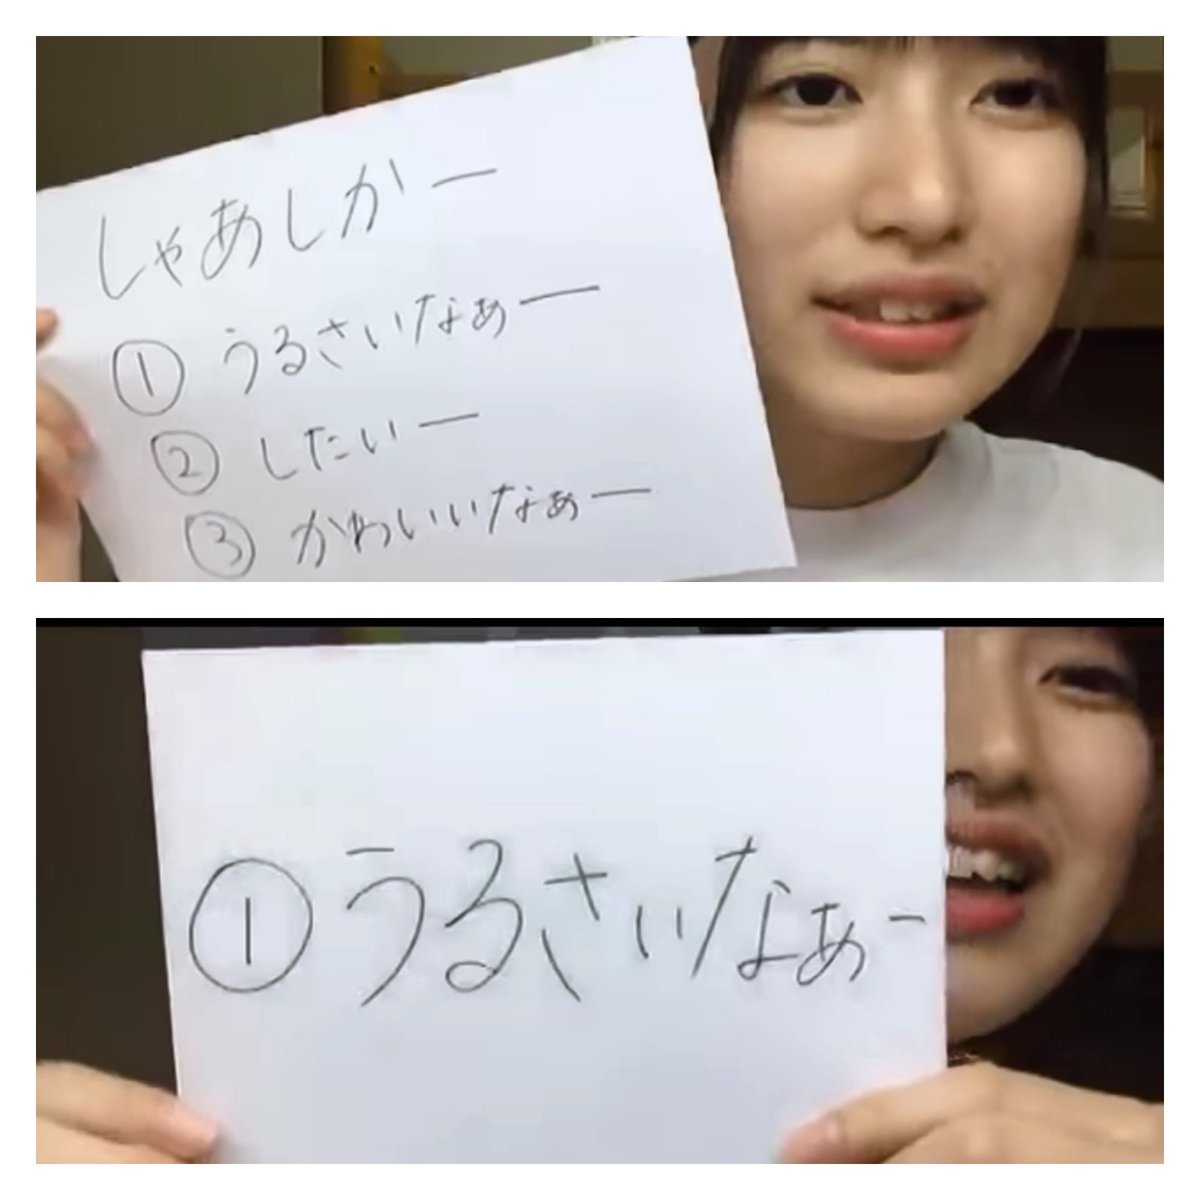 しゃあしかー
① うるさいなぁー
② したいー
③ かわいいなぁー
① うるさいなぁー